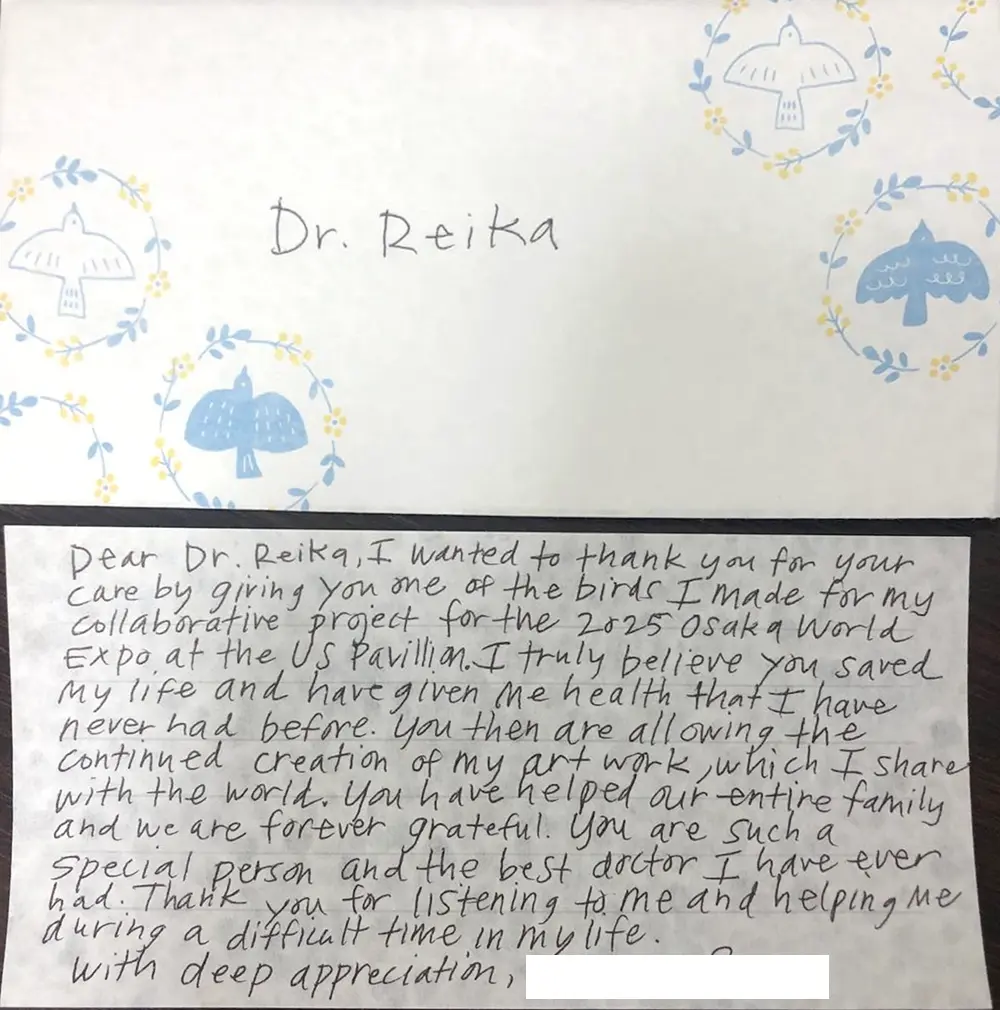 Dr. Reika
Dear Dr. Reika, I wanted to thank you for your
care by giving you one of the birds I made for my
collaborative project for the 2025 Osaka World
Expo at the US Pavillion. I truly believe you saved
my life and have given me health that I have
never had before. You then are allowing the
continued creation of my art work, which I share
with the world. You have helped our entire family
and we are forever grateful. You are such a
special person and the best doctor I have ever
had. Thank you for listening to me and helping me
during a difficult time in my life.
With deep appreciation,